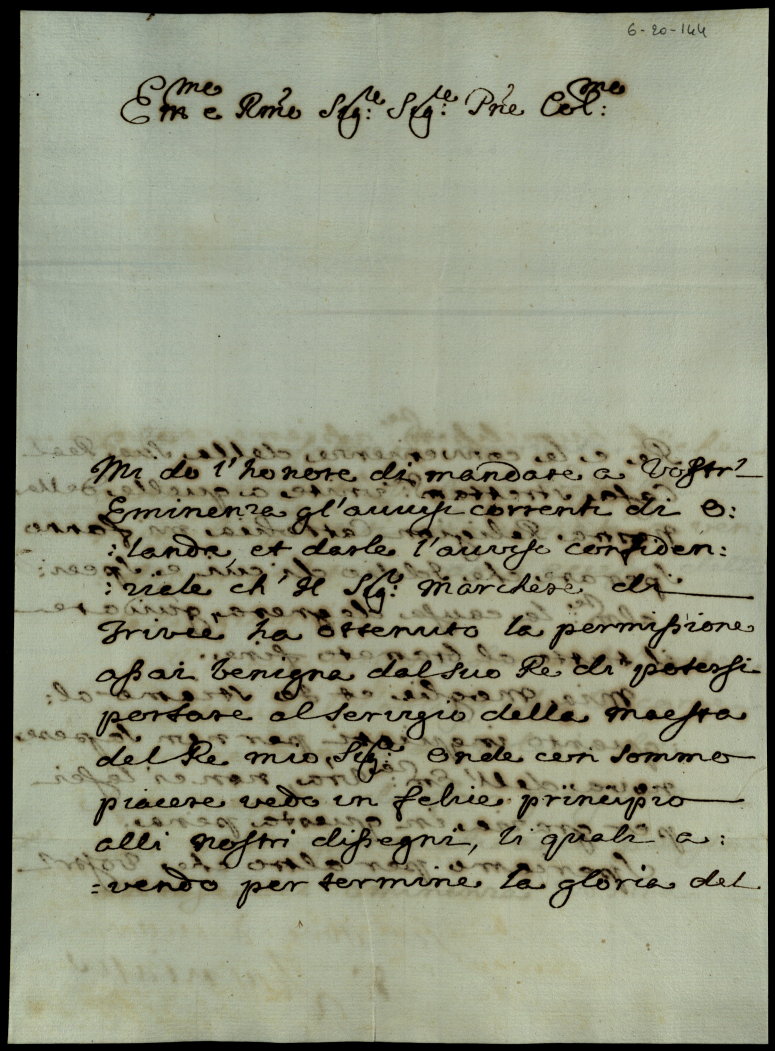 6-20-144
Em^me e Rmo Sig:^re Sig:^re Pne Col:^mo
Mi do l'honore di mandare a Vostr^a
Eminenza gl'auvisi correnti di O:
:landa, et darle l'auviso confiden:
:tiale ch' Il Sig:^re Marchese di
Trivie ha ottenuto la permissione
assai benigna dal suo Re di potersi
portare al servigio della maesta
del Re mio Sig:^re onde con sommo
piacere vedo un felice principio
alli nostri dissegni, li quali a:
:vendo per termine la gloria del